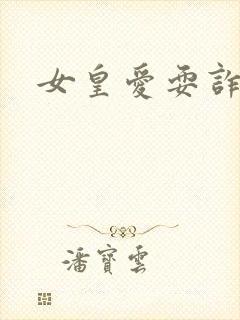 女皇愛耍詐
潘寶雲